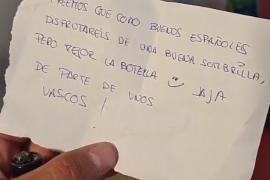 CREEMOS QUE COMO BUENOS ESPAÑOLES
DISFRUTAREIS DE UNA BUENA SOMBRILLA,
PERO MEJOR LA BOTELLA JAJA
DE PARTE DE UNOS
VASCOS!